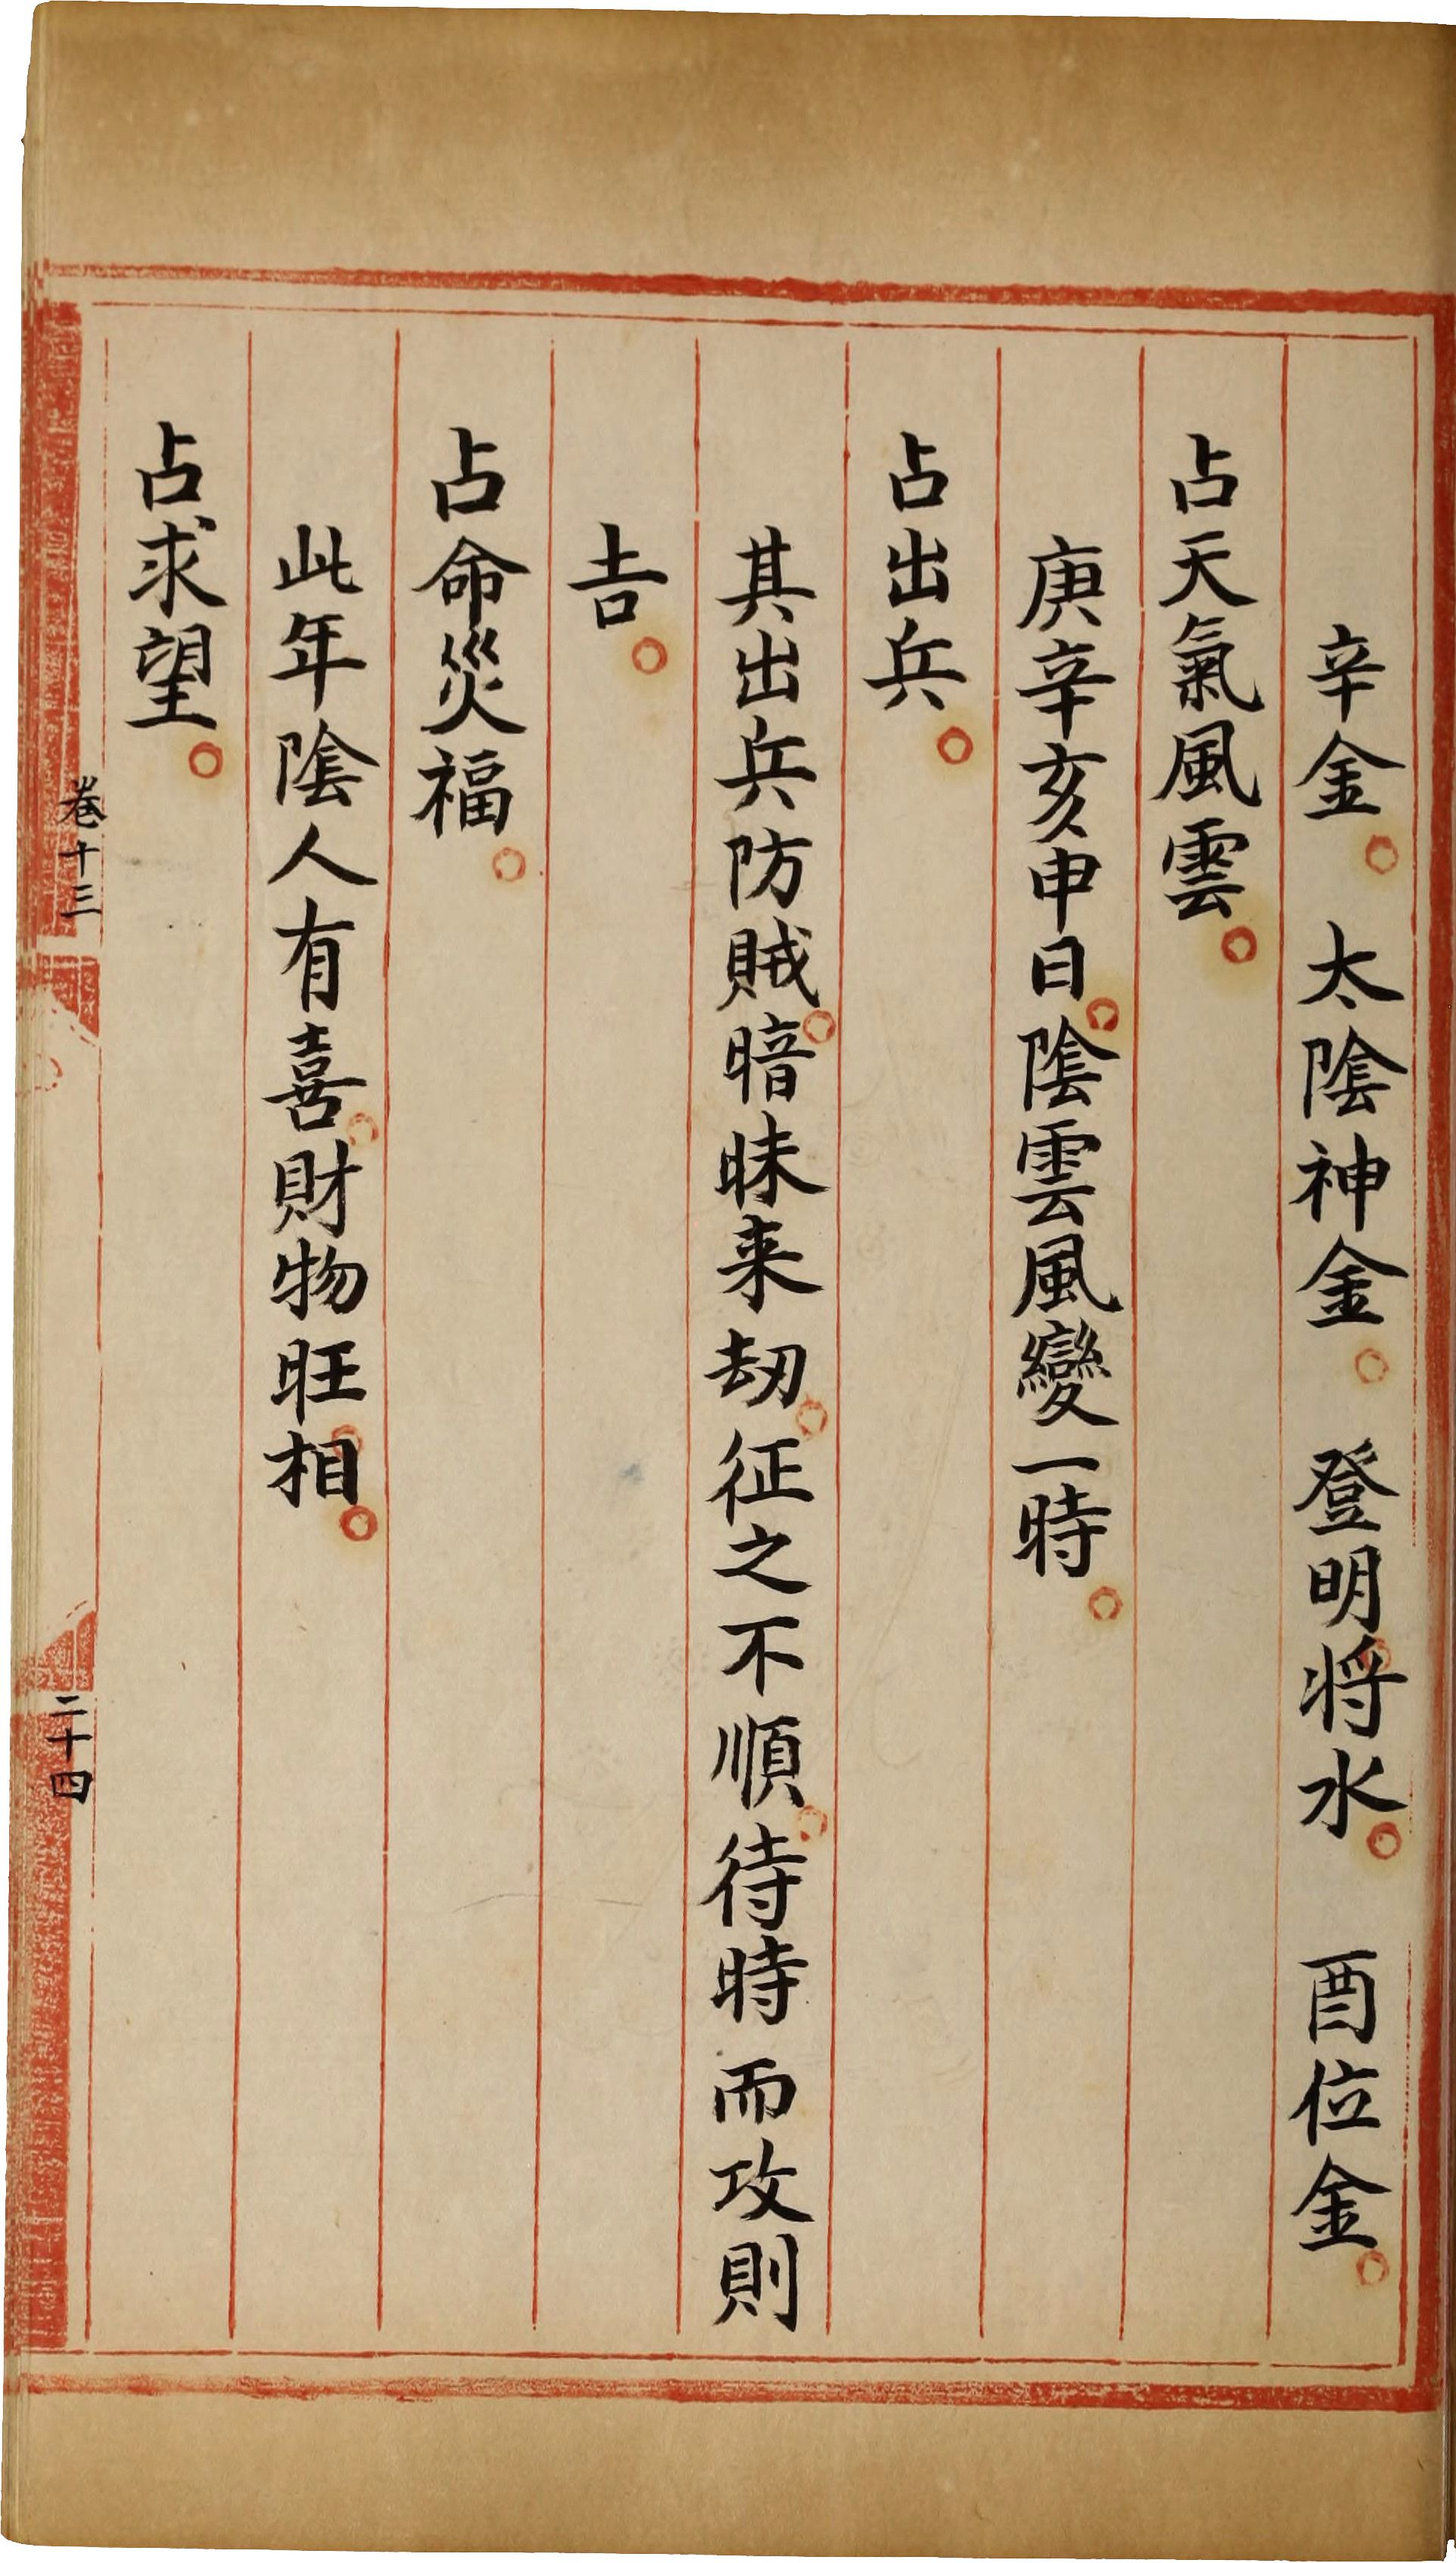 辛金。太陰神金。登明将水。酉位金。
占天氣風雲。
庚辛亥申日。陰雲風變一時。
占出兵。
其出兵防賊。暗昧来刼。征之不順。待時而攻則
吉。
占命災福。
此年陰人有喜。財物旺相。
占求望。
卷十三
二十四